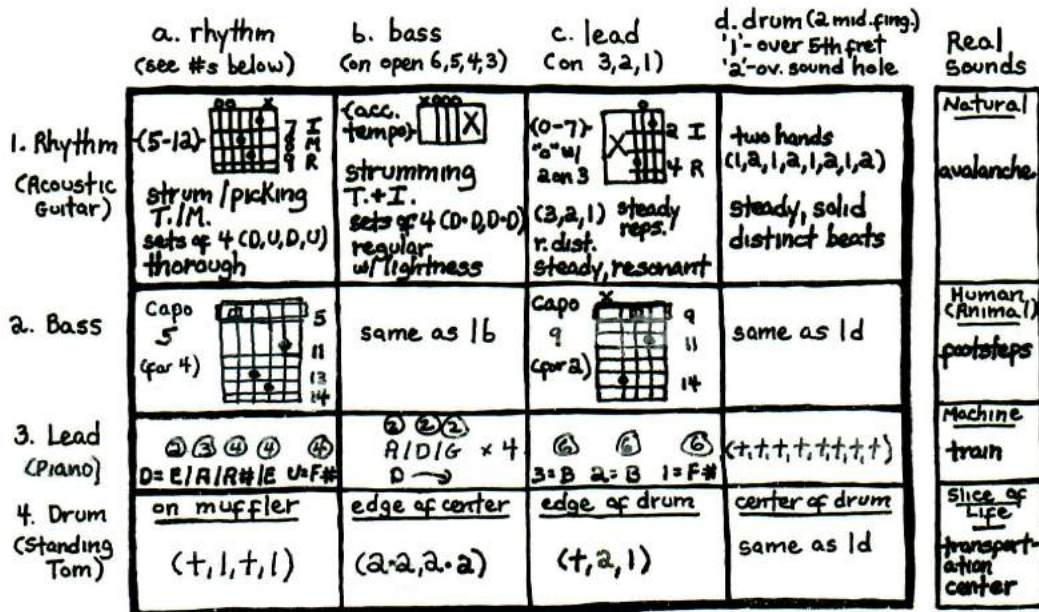 a. rhythm
(see #s below)
b. bass
(on open 6,5,4,3)
c. lead
(on 3,2,1)
d. drum (2 mid. fing.)
'1'- over 5th fret
'2'- ov. sound hole
Real
Sounds
1. Rhythm
(Acoustic
Guitar)
(5-12)
oo x
7 I
8 M
9 R
strum/picking
T./M.
sets of 4 (D,U,D,U)
thorough
(acc.
tempo)
xooo
X
strumming
T.+I.
sets of 4 (D•D,D•D)
regular
w/lightness
(0-7)
"o" w/
2 on 3
o
X
2 I
4 R
(3,2,1) steady
reps./
r. dist.
steady, resonant
two hands
(1,2,1,2,1,2,1,2)
steady, solid
distinct beats
Natural
avalanche
2. Bass
Capo
5
(for 4)
5
11
13
14
same as 1b
Capo
9
(for 2)
x
9
11
14
same as 1d
Human
(Animal)
footsteps
3. Lead
(Piano)
2 3 4 4 4
D= E/A/A#/E U=F#
2 2 2
A/D/G x 4
D →
6 6 6
3=B 2=B 1=F#
(t,t,t,t,t,t,t,t)
Machine
train
4. Drum
(Standing
Tom)
on muffler
(t,1,t,1)
edge of center
(2•2,2•2)
edge of drum
(t,2,1)
center of drum
same as 1d
Slice of
Life
transport-
ation
center